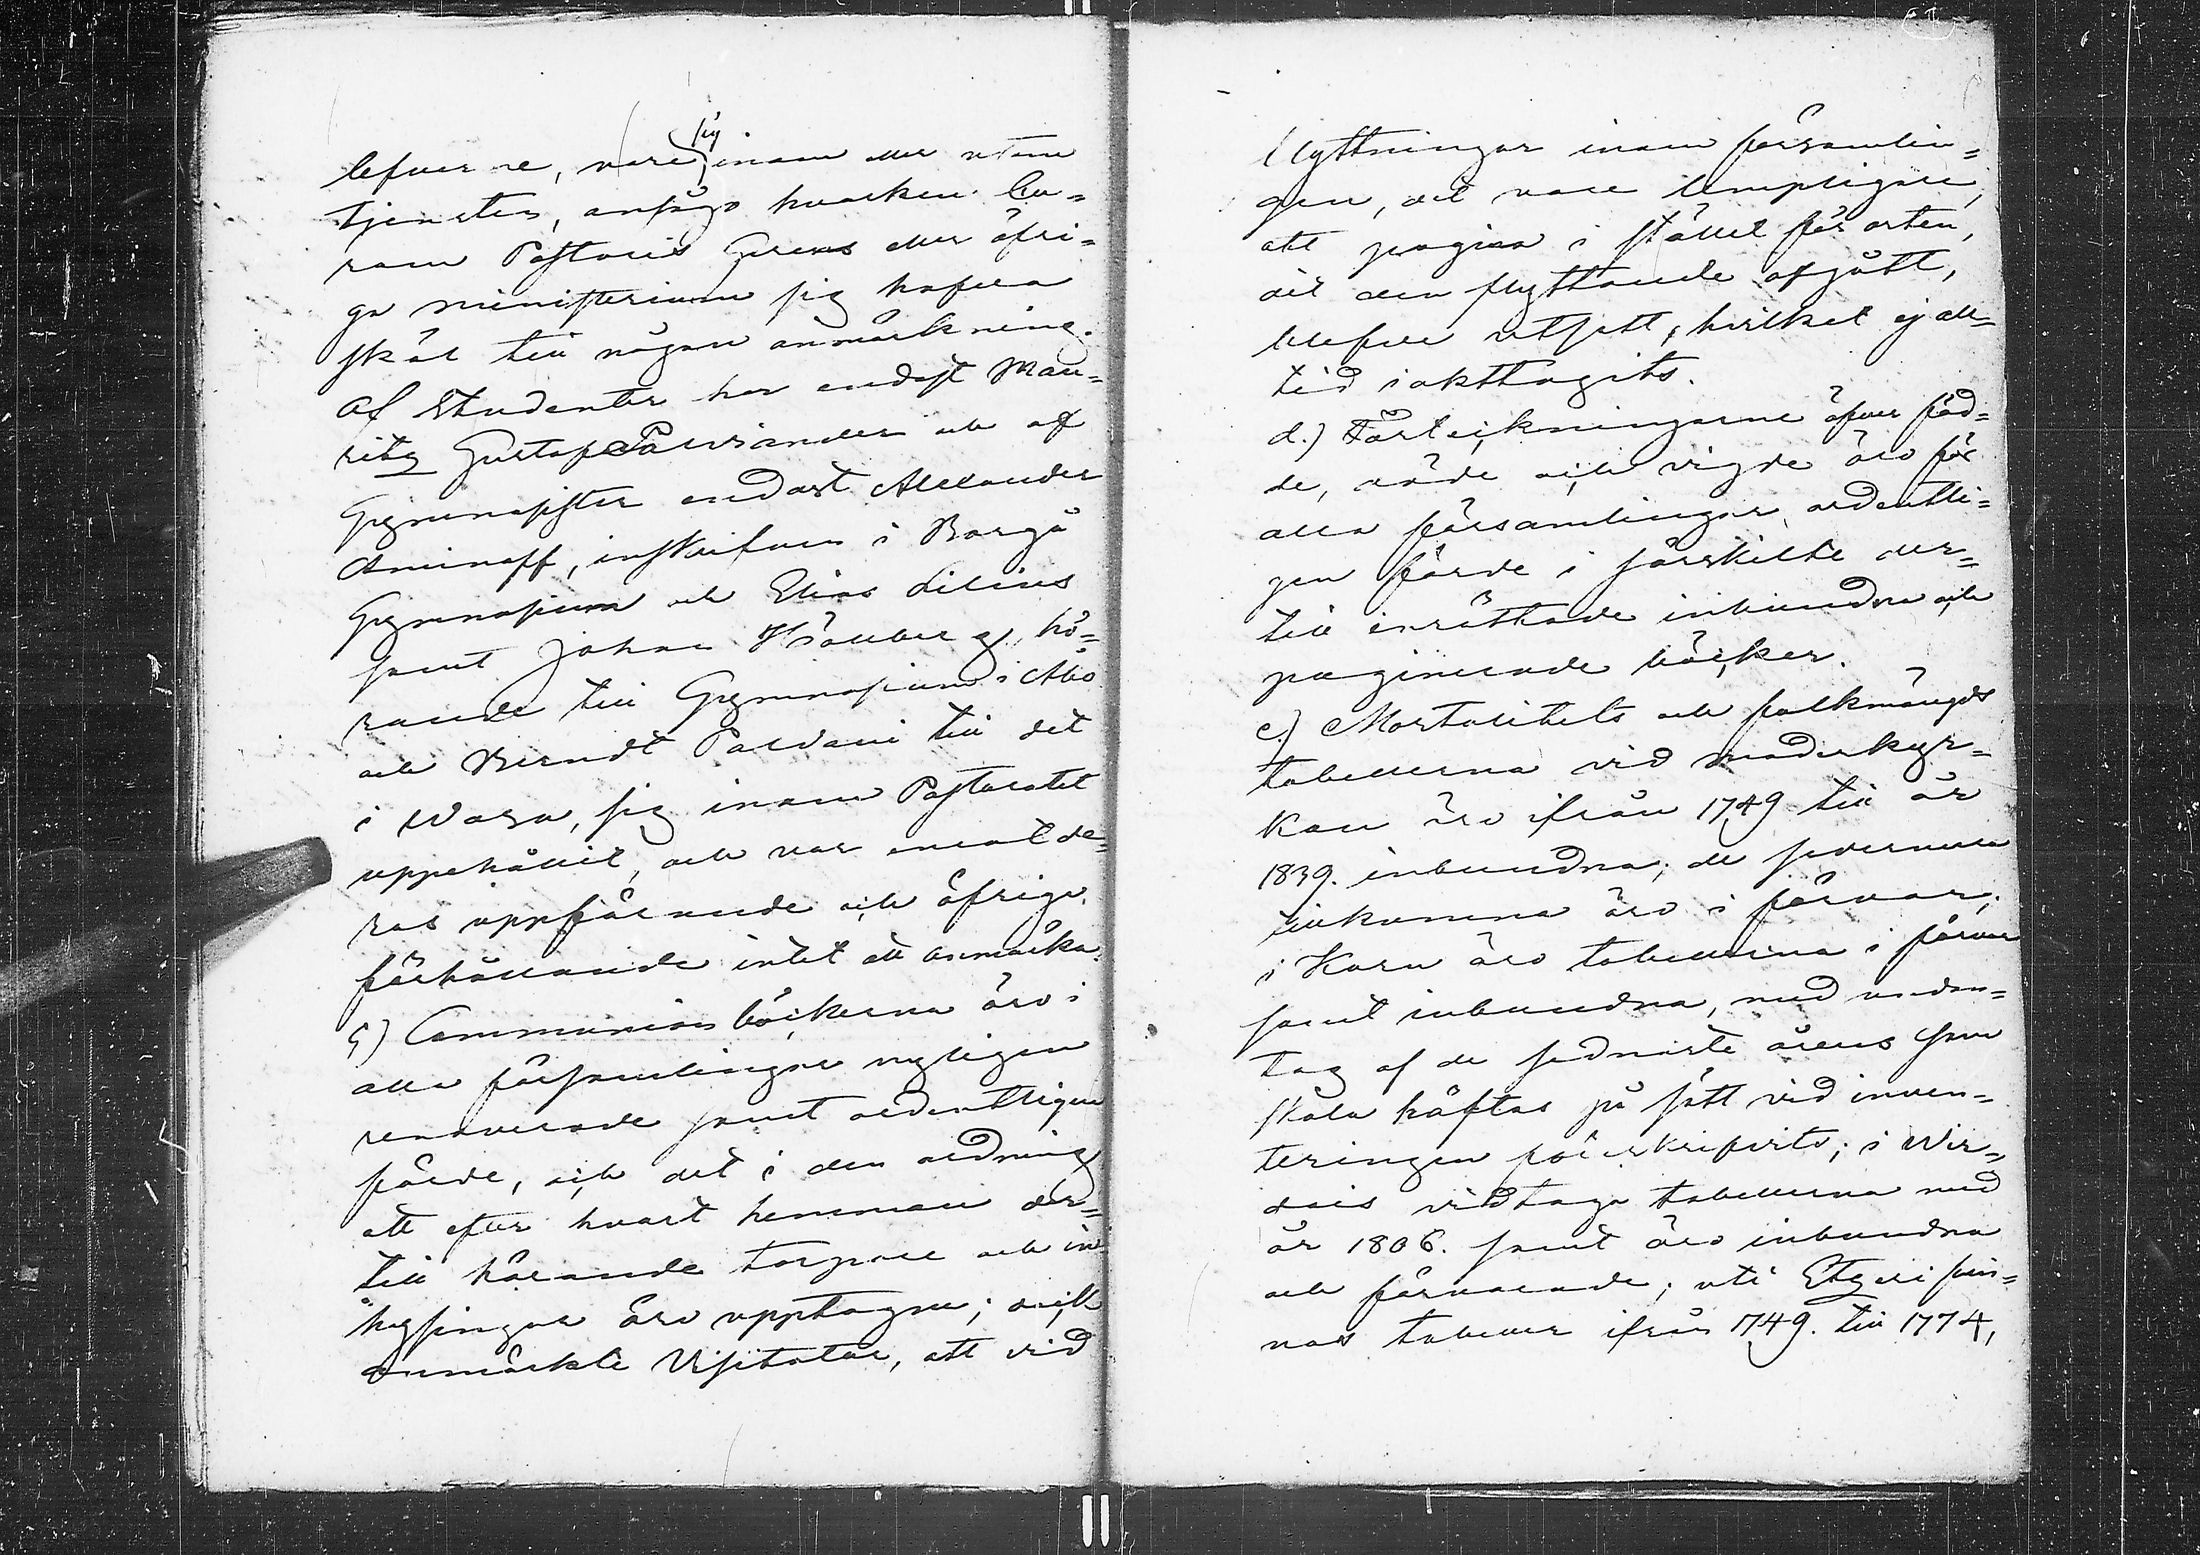 lefverne, vare sig inom eller utom
tjensten, ansågo hvarken Cu-
ram Pastoris Gerens eller öfri-
ga ministerium sig hafva
skäl till någon anmärkning.
Af Studenter har endast Mau-
ritz Gustaf Palviander och af
Gymnasister endast Alexander
Aminoff, inskrifven i Borgå
Gymnasium och Elias Lilius
samt Johan Hållberg, hö-
rande till Gymnasium i Åbo
och Berndt Paldani till det
i Wasa, sig inom Pastoratet
uppehållit, och var emot de-
ras uppförande och öfriga
förhållande intet att anmärka.
c) Communion böckerna äro i
alla församlingar nyligen
renoverade samt ordentligen
förde, och det i den ordning
att efter hvart hemman der-
till hörande torpare och in-
hysingar äro upptagne; och
anmärkte Visitator, att vid
flyttningar inom församlin-
gen, det vore lämpligare,
att pagina i stället för orten,
dit den flyttande afgått,
blefve utsatt, hvilket ej all-
tid iakttagits.
d.) Förteckningarne öfver föd-
de, döde och vigde äro för
alla församlingar ordentli-
gen förde i särskilte der-
till inrättade inbundna och
paginerade böcker.
e) Mortalitets och folkmängds
tabellerna vid moderkyr-
kan äro ifrån 1749 till år
1839. inbundna; de sedermera
tillkomna äro i förvar;
i Kuru äro tabellerna i förvar
samt inbundna, med undan-
tag af de sednaste årens som
skola häftas på sätt vid inven-
teringen föreskrifvits; i Wir-
dois vidtaga tabellerna med
år 1806. samt äro inbundna
och förvarade; uti Etzeri fin-
nas tabeller ifrån 1749. till 1774,